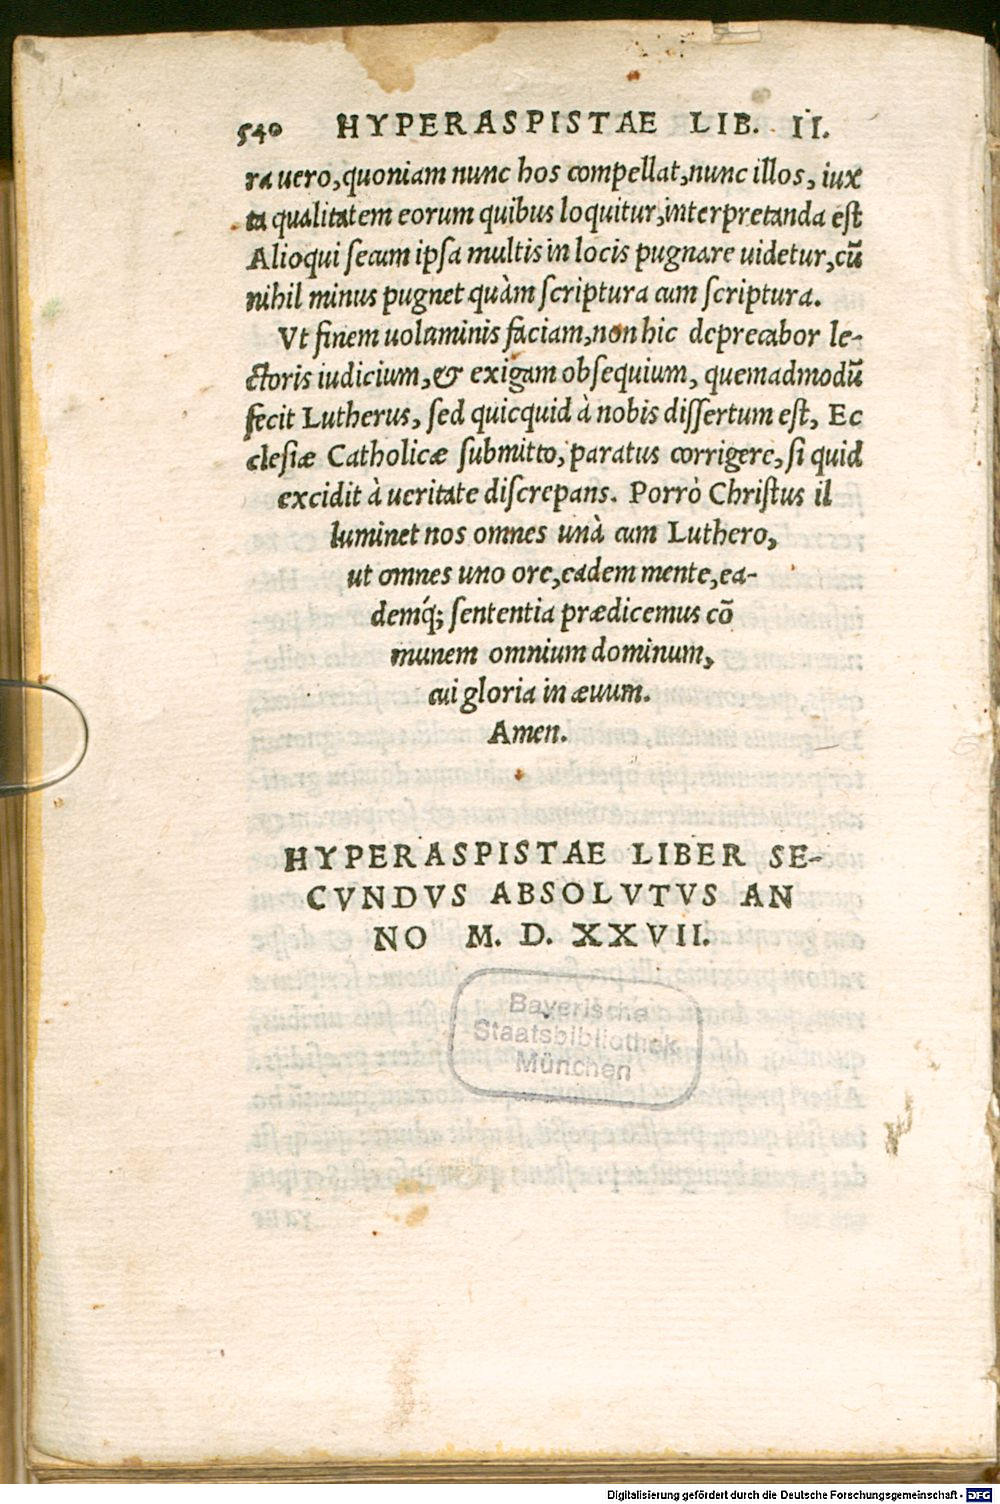 540 HYPERASPISTAE LIB. II.
ra uero, quoniam nunc hos compellat, nunc illos, iux
ta qualitatem eorum quibus loquitur, interpretanda est
Alioqui secum ipsa multis in locis pugnare uidetur, cū
nihil minus pugnet quàm scriptura cum scriptura.
Vt finem uoluminis faciam, non hic deprecabor le-
ctoris iudicium, & exigam obsequium, quemadmodū
fecit Lutherus, sed quicquid à nobis dissertum est, Ec
clesiæ Catholicæ submitto, paratus corrigere, si quid
excidit à ueritate discrepans. Porrò Christus il
luminet nos omnes unà cum Luthero,
ut omnes uno ore, eadem mente, ea-
demq́; sententia prædicemus cō
munem omnium dominum,
cui gloria in æuum.
Amen.
HYPERASPISTAE LIBER SE-
CVNDVS ABSOLVTVS AN
NO M. D. XXVII.
Bayerische
Staatsbibliothek
München
Digitalisierung gefördert durch die Deutsche Forschungsgemeinschaft - DFG